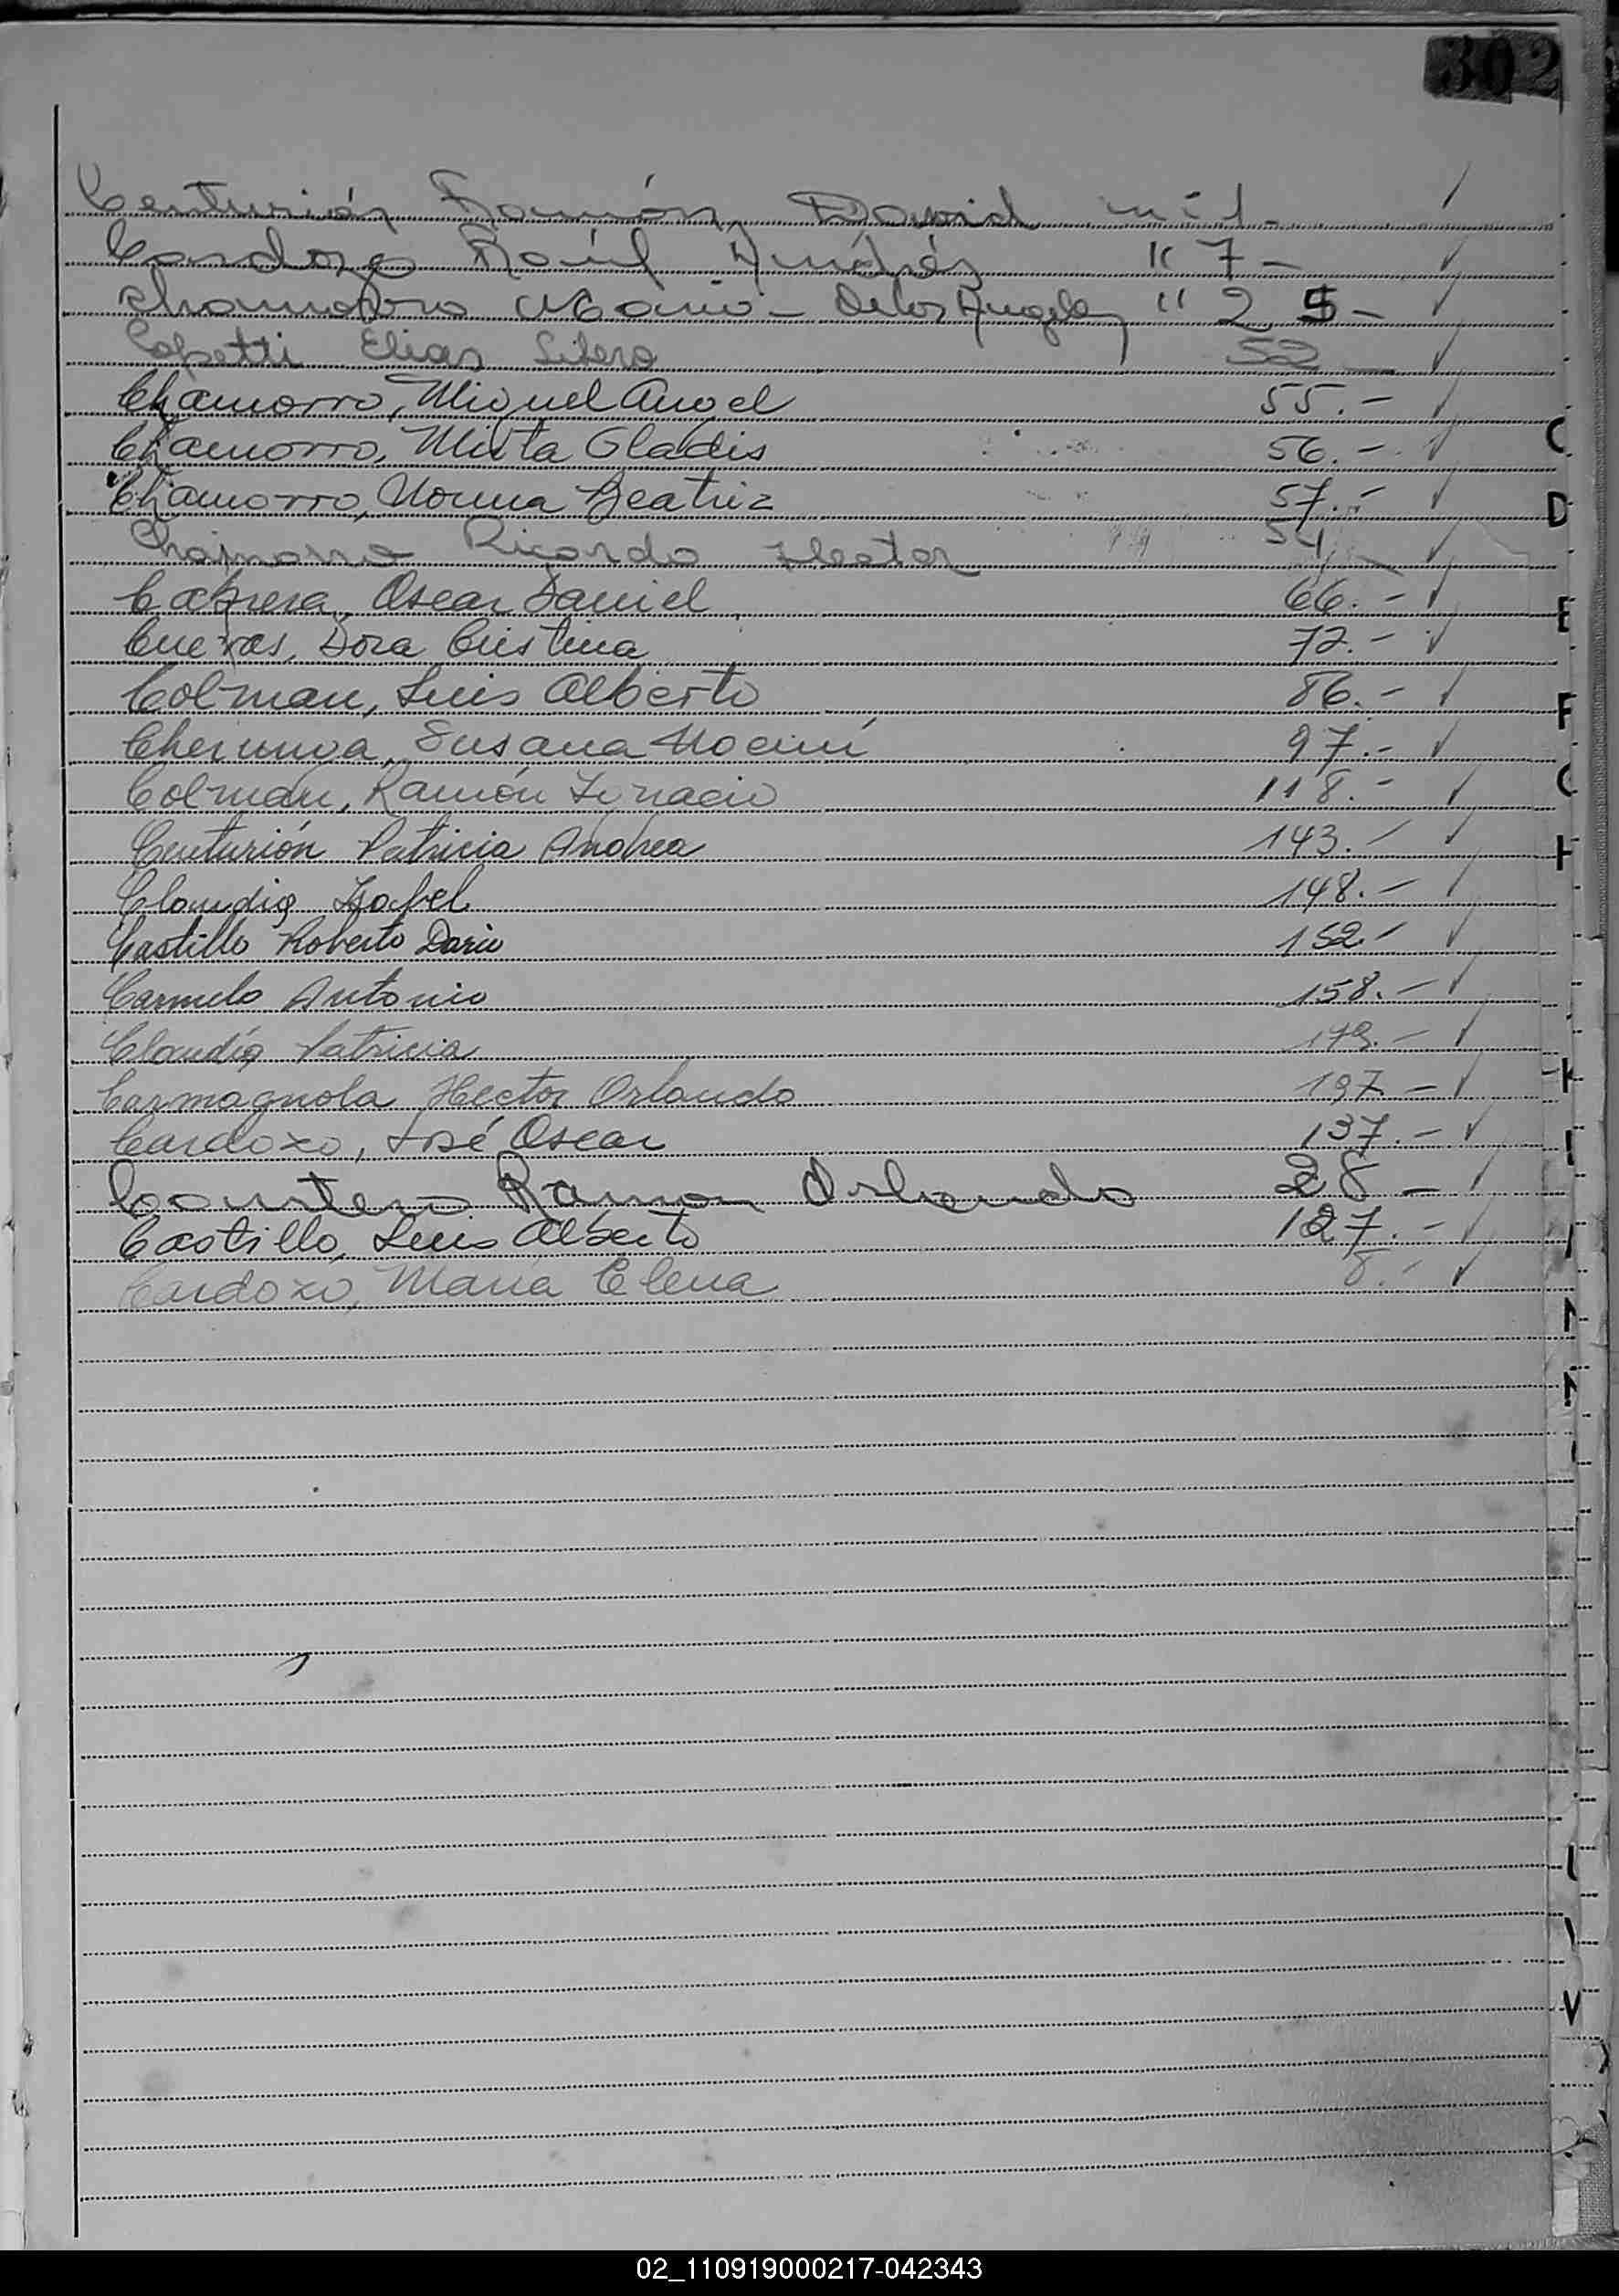 302
Centurión Ramón David nº 1-
Cardozo Raúl Andrés " 7-
Chamorro Mario - De los Angeles " 25-
Copetti Elias 52
Chamorro, Miguel Angel 55.-
Chamorro, Mirta Gladis 56.-
Chamorro, Norma Beatriz 57.-
Chamorro Ricardo Hector
Cabrera, Oscar Daniel 66.-
Cuevas, Dora Cristina 72.-
Colman, Luis Alberto 86.-
Susana Noemí 97.-
Colman, Ramón Ignacio 118.-
Centurión Patricia Andrea 143.-
Claudia Isabel 148.-
Castillo Roberto Dario 152.-
Carmelo Antonio 158.-
Claudia Patricia
Carmagnola Hector Orlando 197-
Cardozo, José Oscar 137.-
Ramon Orlando 28-
Castillo, Luis Alberto 127.-
Cardozo, Maria Elena 8.-
C
D
E
F
G
H
K
V
02_110919000217-042343